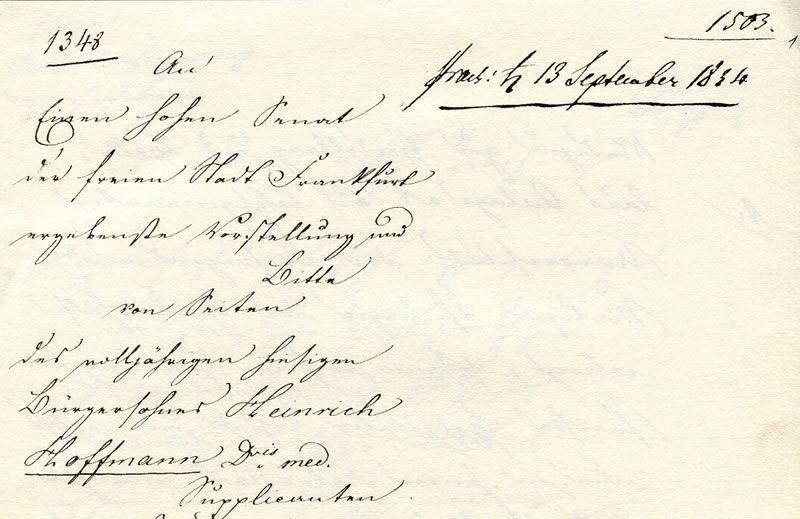 1503.
1348
Praes: ♄ 13 September 1834
An
Einen hohen Senat
der freien Stadt Frankfurt
ergebenste Vorstellung und
Bitte
von Seiten
des volljährigen hiesigen
Bürgersohnes Heinrich
Hoffmann Dris med.
Supplicanten